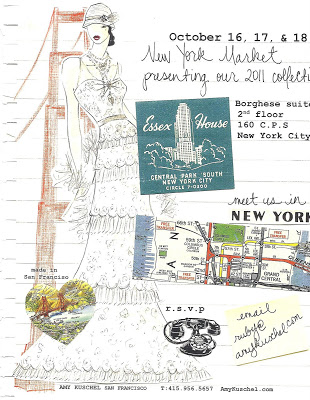 October 16, 17, & 18
New York Market
presenting our 2011 collecti
Borghese suite
2nd floor
160 C.P.S
New York City
Essex House
CENTRAL PARK SOUTH
NEW YORK CITY
CIRCLE 7-0300
meet us in
NEW YORK
60TH ST.
FREE TRANSFER
FREE TRANSFER
GRAND CENTRAL
made in
San Franciso
r.s.v.p
email
ruby@
amykuschel.com
AMY KUSCHEL SAN FRANCISCO T:415.956.5657 AmyKuschel.com